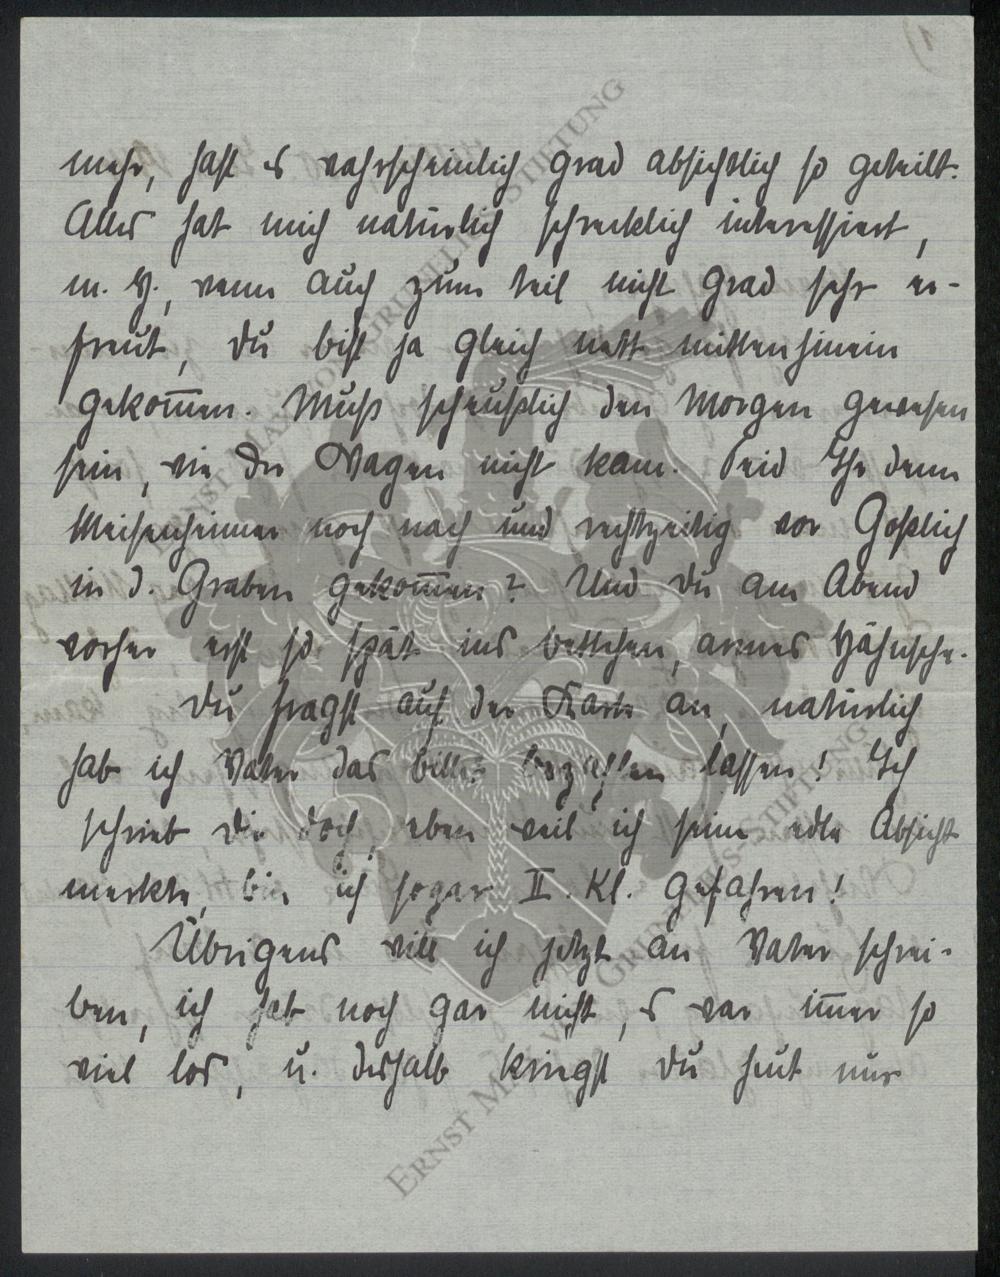 mehr, hast es wahrscheinlich grad absichtlich so geteilt.
Alles hat mich natürlich schrecklich interessiert,
m. H., wenn auch zum teil nicht grad sehr er-
freut, du bist ja gleich nett mittenhinein
gekom̅en. Muß scheußlich den Morgen gewesen
sein, wie der Wagen nicht kam. Seid Ihr denn
Meisenheimer noch nach und rechtzeitig vor Goßlich
in d. Graben gekom̅en? Und du am Abend
vorher erst so spät ins bettchen, armes Hähnsche.
Du fragst auf der Karte an, natürlich
hab ich Vater das billet bezahlen lassen! Ich
schrieb dir doch, eben weil ich seine edle Absicht
merkte, bin ich sogar II. Kl. gefahren!
Übrigens will ich jetzt an Vater schrei-
ben, ich hab noch gar nicht, es war im̅er so
viel los, u. deshalb kriegst du heut nur
ERNST MAX VON GRUNELIUS-STIFTUNG
ERNST MAX VON GRUNELIUS-STIFTUNG